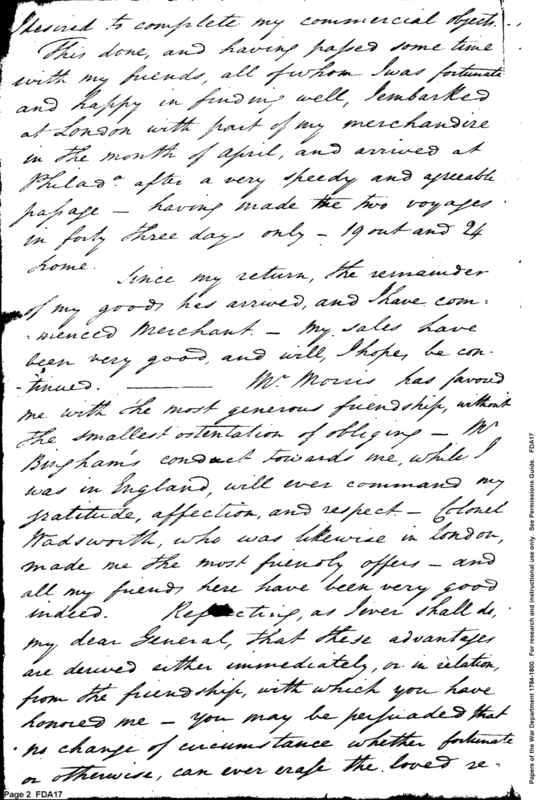 I desired to complete my commercial objects.
This done, and having passed some time
with my friends, all of whom I was fortunate
and happy in finding well, I embarked
at London with part of my merchandize
in the month of April, and arrived at
Philada. after a very speedy and agreeable
passage — having made the two voyages
in forty three days only — 19 out and 24
home.
Since my return, the remainder
of my goods has arrived, and I have com-
-menced Merchant. — My sales have
been very good, and will, I hope, be con-
-tinued. ——— Mr. Morris has favored
me with the most generous friendship, without
the smallest ostentation of obliging — Mr
Bingham's conduct towards me, while I
was in England, will ever command my
gratitude, affection, and respect — Colonel
Wadsworth, who was likewise in London,
made me the most friendly offers — and
all my friends here have been very good
indeed. Reflecting, as I ever shall do,
my dear General, that these advantages
are derived either immediately, or in relation,
from the friendship, with which you have
honored me — you may be persuaded that
no change of circumstance whether fortunate
or otherwise, can ever erase the loved re-
Page 2 FDA17
Papers of the War Department 1784-1800. For research and instructional use only. See Permissions Guide. FDA17